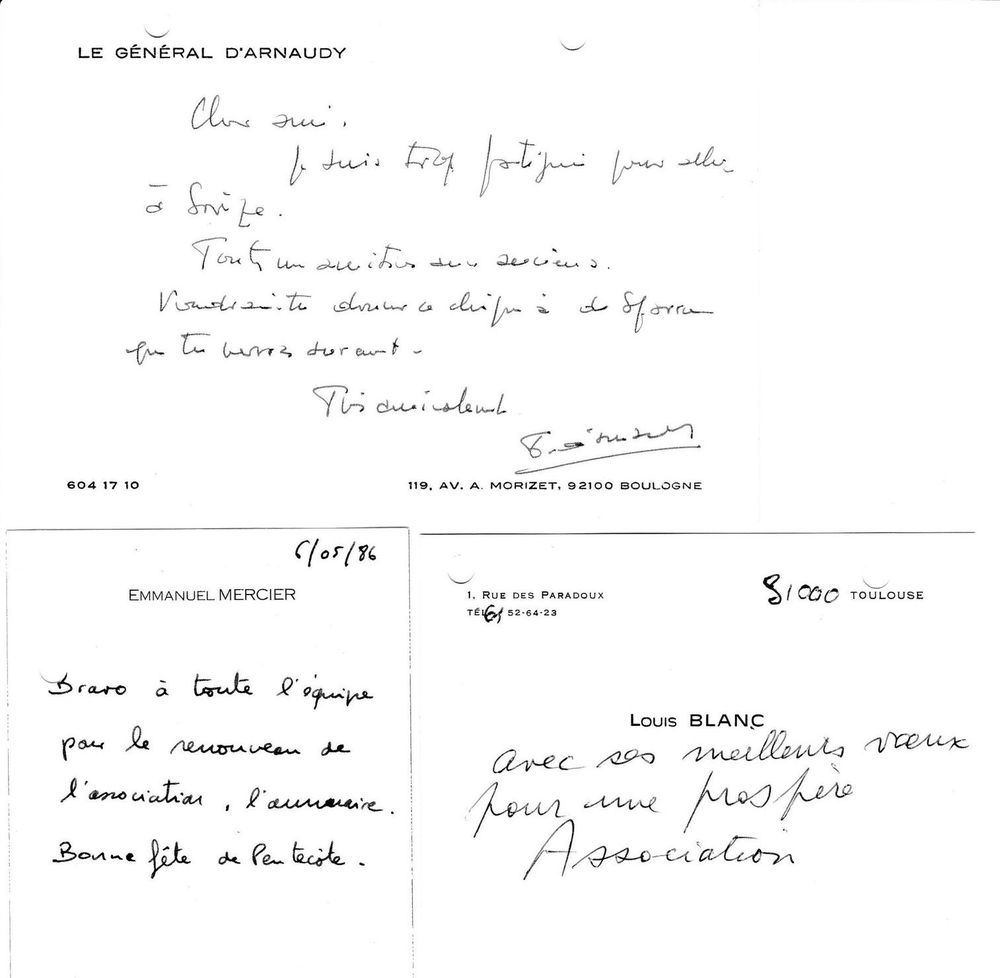 LE GÉNÉRAL D'ARNAUDY
Cher ami.
Je suis trop fatigué pour aller
à Sorèze.
Toutes mes amitiés aux anciens.
Voudrais-tu donner ce chèque à de
que tu verras surement.
Très amicalement
604 17 10
119, AV. A. MORIZET, 92100 BOULOGNE
6/05/86
EMMANUEL MERCIER
Bravo à toute l'équipe
pour le renouveau de
l'association, l'annuaire.
Bonne fête de Pentecôte.
1, RUE DES PARADOUX
81000 TOULOUSE
TÉL. 61 52-64-23
LOUIS BLANC
avec ses meilleurs vœux
pour une prospère
Association